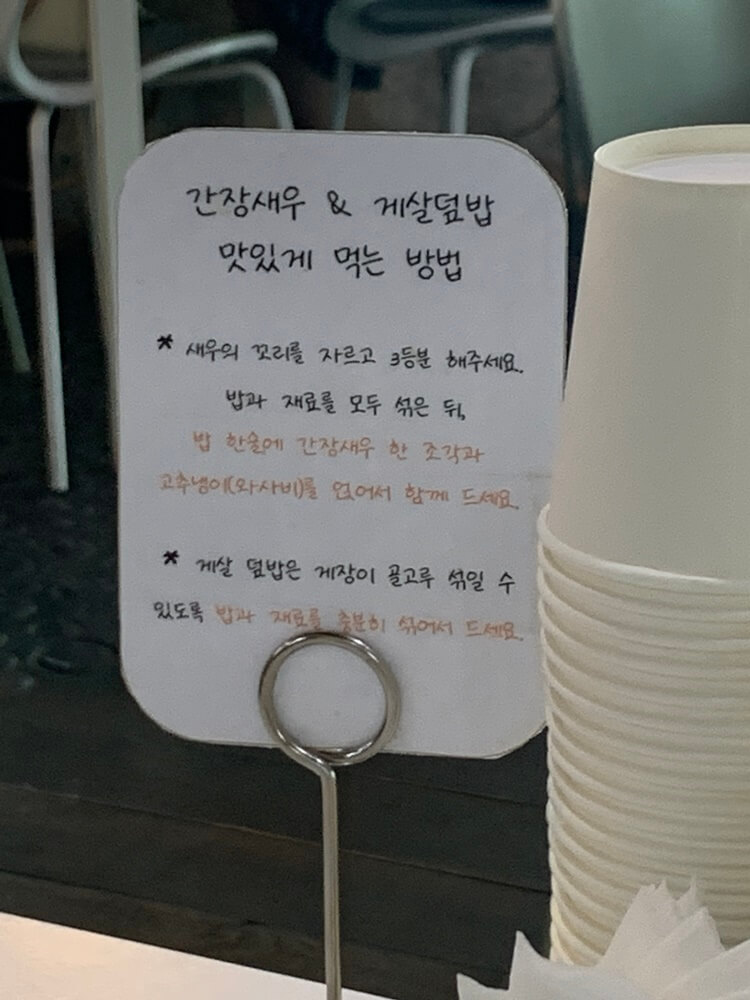 간장새우 & 게살덮밥
맛있게 먹는 방법
* 새우의 꼬리를 자르고 3등분 해주세요.
밥과 재료를 모두 섞은 뒤,
밥 한술에 간장새우 한 조각과
고추냉이(와사비)를 얹어서 함께 드세요.
* 게살 덮밥은 게장이 골고루 섞일 수
있도록 밥과 재료를 충분히 섞어서 드세요.